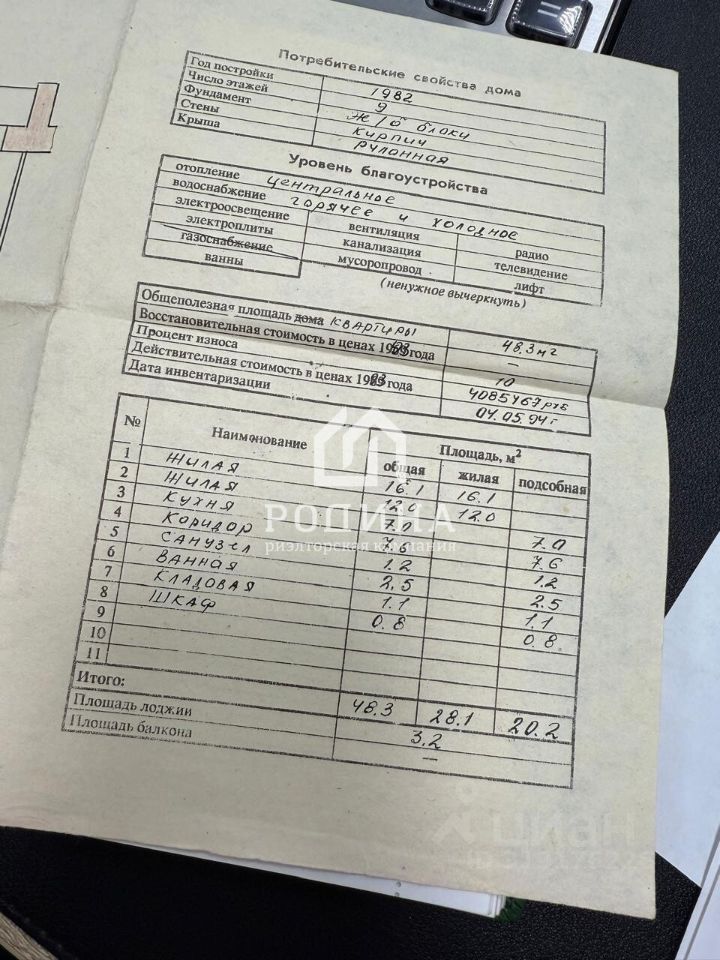 Потребительские свойства дома
Год постройки 1982
Число этажей 9
Фундамент Ж/б блоки
Стены кирпич
Крыша рулонная
Уровень благоустройства
отопление центральное
водоснабжение горячее и холодное
электроосвещение вентиляция радио
электроплиты канализация телевидение
газоснабжение мусоропровод лифт
ванны (ненужное вычеркнуть)
Общеполезная площадь дома квартиры 48.3 м²
Восстановительная стоимость в ценах 19 года —
Процент износа 10
Действительная стоимость в ценах 1993 года 4085467 руб
Дата инвентаризации 04.05.94 г
№ Наименование Площадь, м²
общая жилая подсобная
1 Жилая 16.1 16.1
2 Жилая 12.0 12.0
3 Кухня 7.0 7.0
4 Коридор 7.6 7.6
5 Санузел 1.2 1.2
6 Ванная 2.5 2.5
7 Кладовая 1.1 1.1
8 Шкаф 0.8 0.8
9
10
11
Итого: 48.3 28.1 20.2
Площадь лоджии 3.2
Площадь балкона —
РОПИНА
риэлторская компания
циан